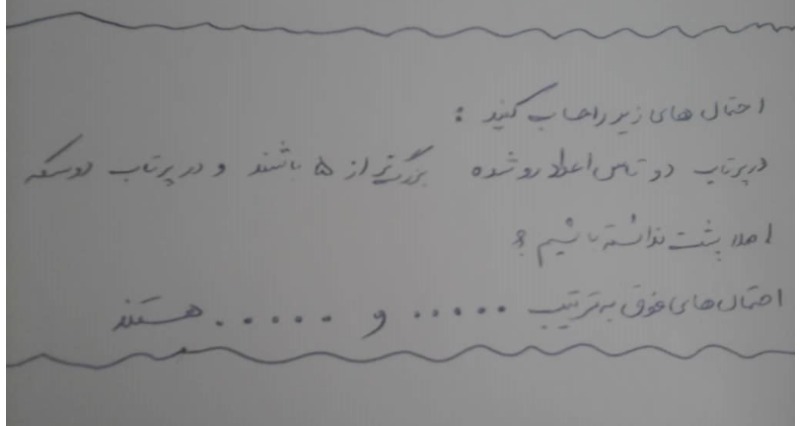 احتمال های زیر را حساب کنید :
در پرتاب دو تاس اعداد رو شده بزرگتر از ۵ باشند و در پرتاب دو سکه
اصلا پشت نداشته باشیم ؟
احتمال های فوق به ترتیب ..... و ...... هستند